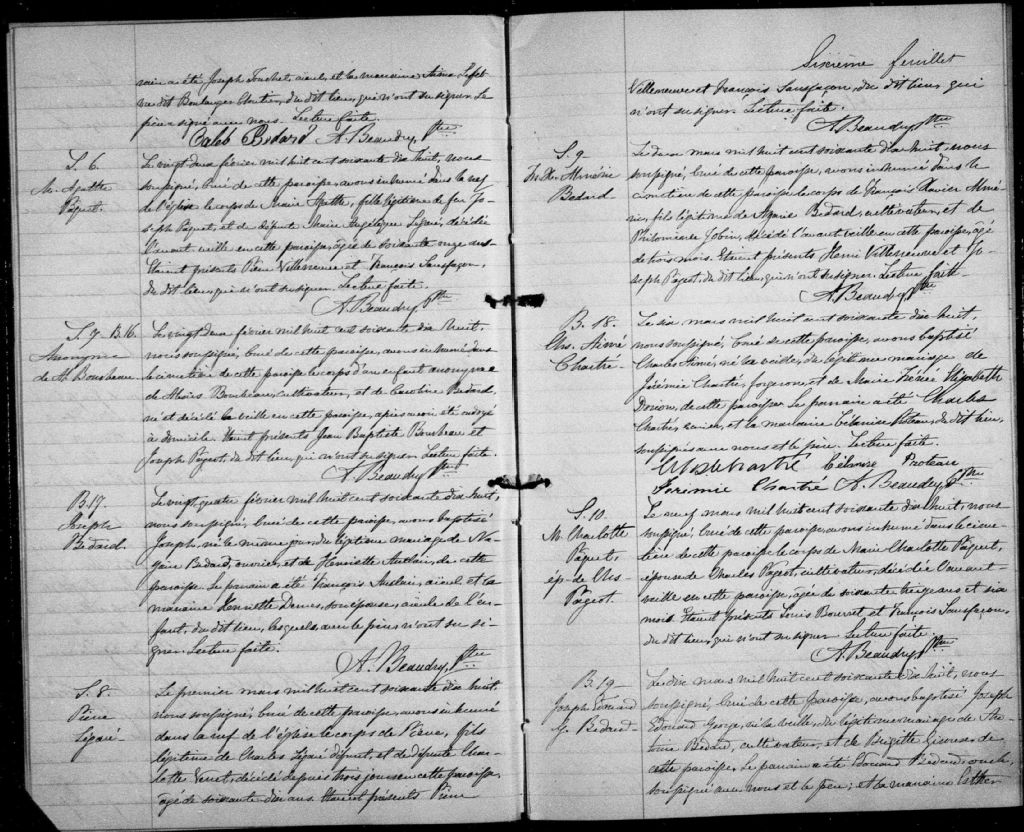 rain a été Joseph Touchet, aïeul, et la marraine Anna Lefeb
vre dit Boulanger Chrétien, du dit lieu, qui n'ont su signer. Le
père a signé avec nous. Lecture faite.
Caleb Bedard A. Beaudry, Ptre
S. 6.
M. Agathe
Paquet.
Le vingt deux février mil huit cent soixante dix huit, nous
soussigné, Curé de cette paroisse, avons inhumé dans la nef
de l'église le corps de Marie Agathe, fille légitime de feu Jo-
seph Paquet, et de défunte Marie Angélique Légaré, décédée
l'avant veille en cette paroisse, âgée de soixante onze ans.
Etaient présents Pierre Villeneuve et François Sansfaçon,
du dit lieu, qui n'ont su signer. Lecture faite.
A. Beaudry, Ptre
S. 7. B. 16.
Anonyme
de M. Bourbeau.
Le vingt deux février mil huit cent soixante dix huit,
nous soussigné, Curé de cette paroisse, avons inhumé dans
le cimetière de cette paroisse le corps d'un enfant anonyme
de Moïse Bourbeau, cultivateur, et de Caroline Bedard,
né et décédé la veille en cette paroisse, après avoir été ondoyé
à domicile. Etaient présents Jean Baptiste Bourbeau et
Joseph Paquet, du dit lieu, qui n'ont su signer. Lecture faite.
A. Beaudry, Ptre
B. 17.
Joseph
Bedard.
Le vingt quatre février mil huit cent soixante dix huit,
nous soussigné, Curé de cette paroisse, avons baptisé
Joseph, né le même jour, du légitime mariage de Na-
zaire Bedard, ouvrier, et de Henriette Auclair, de cette
paroisse. Le parrain a été François Auclair, aïeul et la
marraine Henriette Demers, son épouse, aïeule de l'en-
fant, du dit lieu, lesquels, avec le père, n'ont su si-
gner. Lecture faite.
A. Beaudry, Ptre
S. 8.
Pierre
Légaré
Le premier mars mil huit cent soixante dix huit,
nous soussigné, Curé de cette paroisse, avons inhumé
dans la nef de l'église le corps de Pierre, fils
légitime de Charles Légaré défunt, et de défunte Char-
lotte Verret, décédé depuis trois jours en cette paroisse,
âgé de soixante dix ans. Etaient présents Pierre
Sixième feuillet
Villeneuve et François Sansfaçon, du dit lieu, qui
n'ont su signer. Lecture faite.
A. Beaudry, Ptre
S. 9.
F. X. Alméric
Bedard
Le deux mars mil huit cent soixante dix huit, nous
soussigné, Curé de cette paroisse, avons inhumé dans le
cimetière de cette paroisse le corps de François Xavier Almé-
ric, fils légitime de Marie Bedard, cultivateur, et de
Philomène Jobin, décédé l'avant veille en cette paroisse, âgé
de trois mois. Etaient présents Henri Villeneuve et Jo-
seph Paquet, du dit lieu, qui n'ont su signer. Lecture faite.
A. Beaudry, Ptre
B. 18.
Chs. Aimé
Chartré
Le dix mars mil huit cent soixante dix huit,
nous soussigné, Curé de cette paroisse, avons baptisé
Charles Aimé, né la veille, du légitime mariage de
Jérémie Chartré, forgeron, et de Marie Elizabeth
Dorion, de cette paroisse. Le parrain a été Charles
Chartré, et la marraine Célanire Proteau, du dit lieu,
soussignés avec nous et le père. Lecture faite.
Chs Chartré Célanire Proteau
Jérémie Chartré A. Beaudry, Ptre
S. 10.
M. Charlotte
Paquet,
ép. de Chs
Pageot.
Le neuf mars mil huit cent soixante dix huit, nous
soussigné, Curé de cette paroisse, avons inhumé dans le cime-
tière de cette paroisse le corps de Marie Charlotte Paquet,
épouse de Charles Pageot, cultivateur, décédée l'avant
veille en cette paroisse, âgée de soixante treize ans et six
mois. Etaient présents Louis Bourret et François Sansfaçon,
du dit lieu, qui n'ont su signer. Lecture faite.
A. Beaudry, Ptre
B. 19
Joseph Edouard
G. Bedard
Le dix mars mil huit cent soixante dix huit, nous
soussigné, Curé de cette paroisse, avons baptisé Joseph
Edouard George, né la veille, du légitime mariage de An-
toine Bedard, cultivateur, et de Brigitte Giroux, de
cette paroisse. Le parrain a été Edouard Bedard, oncle,
soussigné avec nous et le père; et la marraine Esther